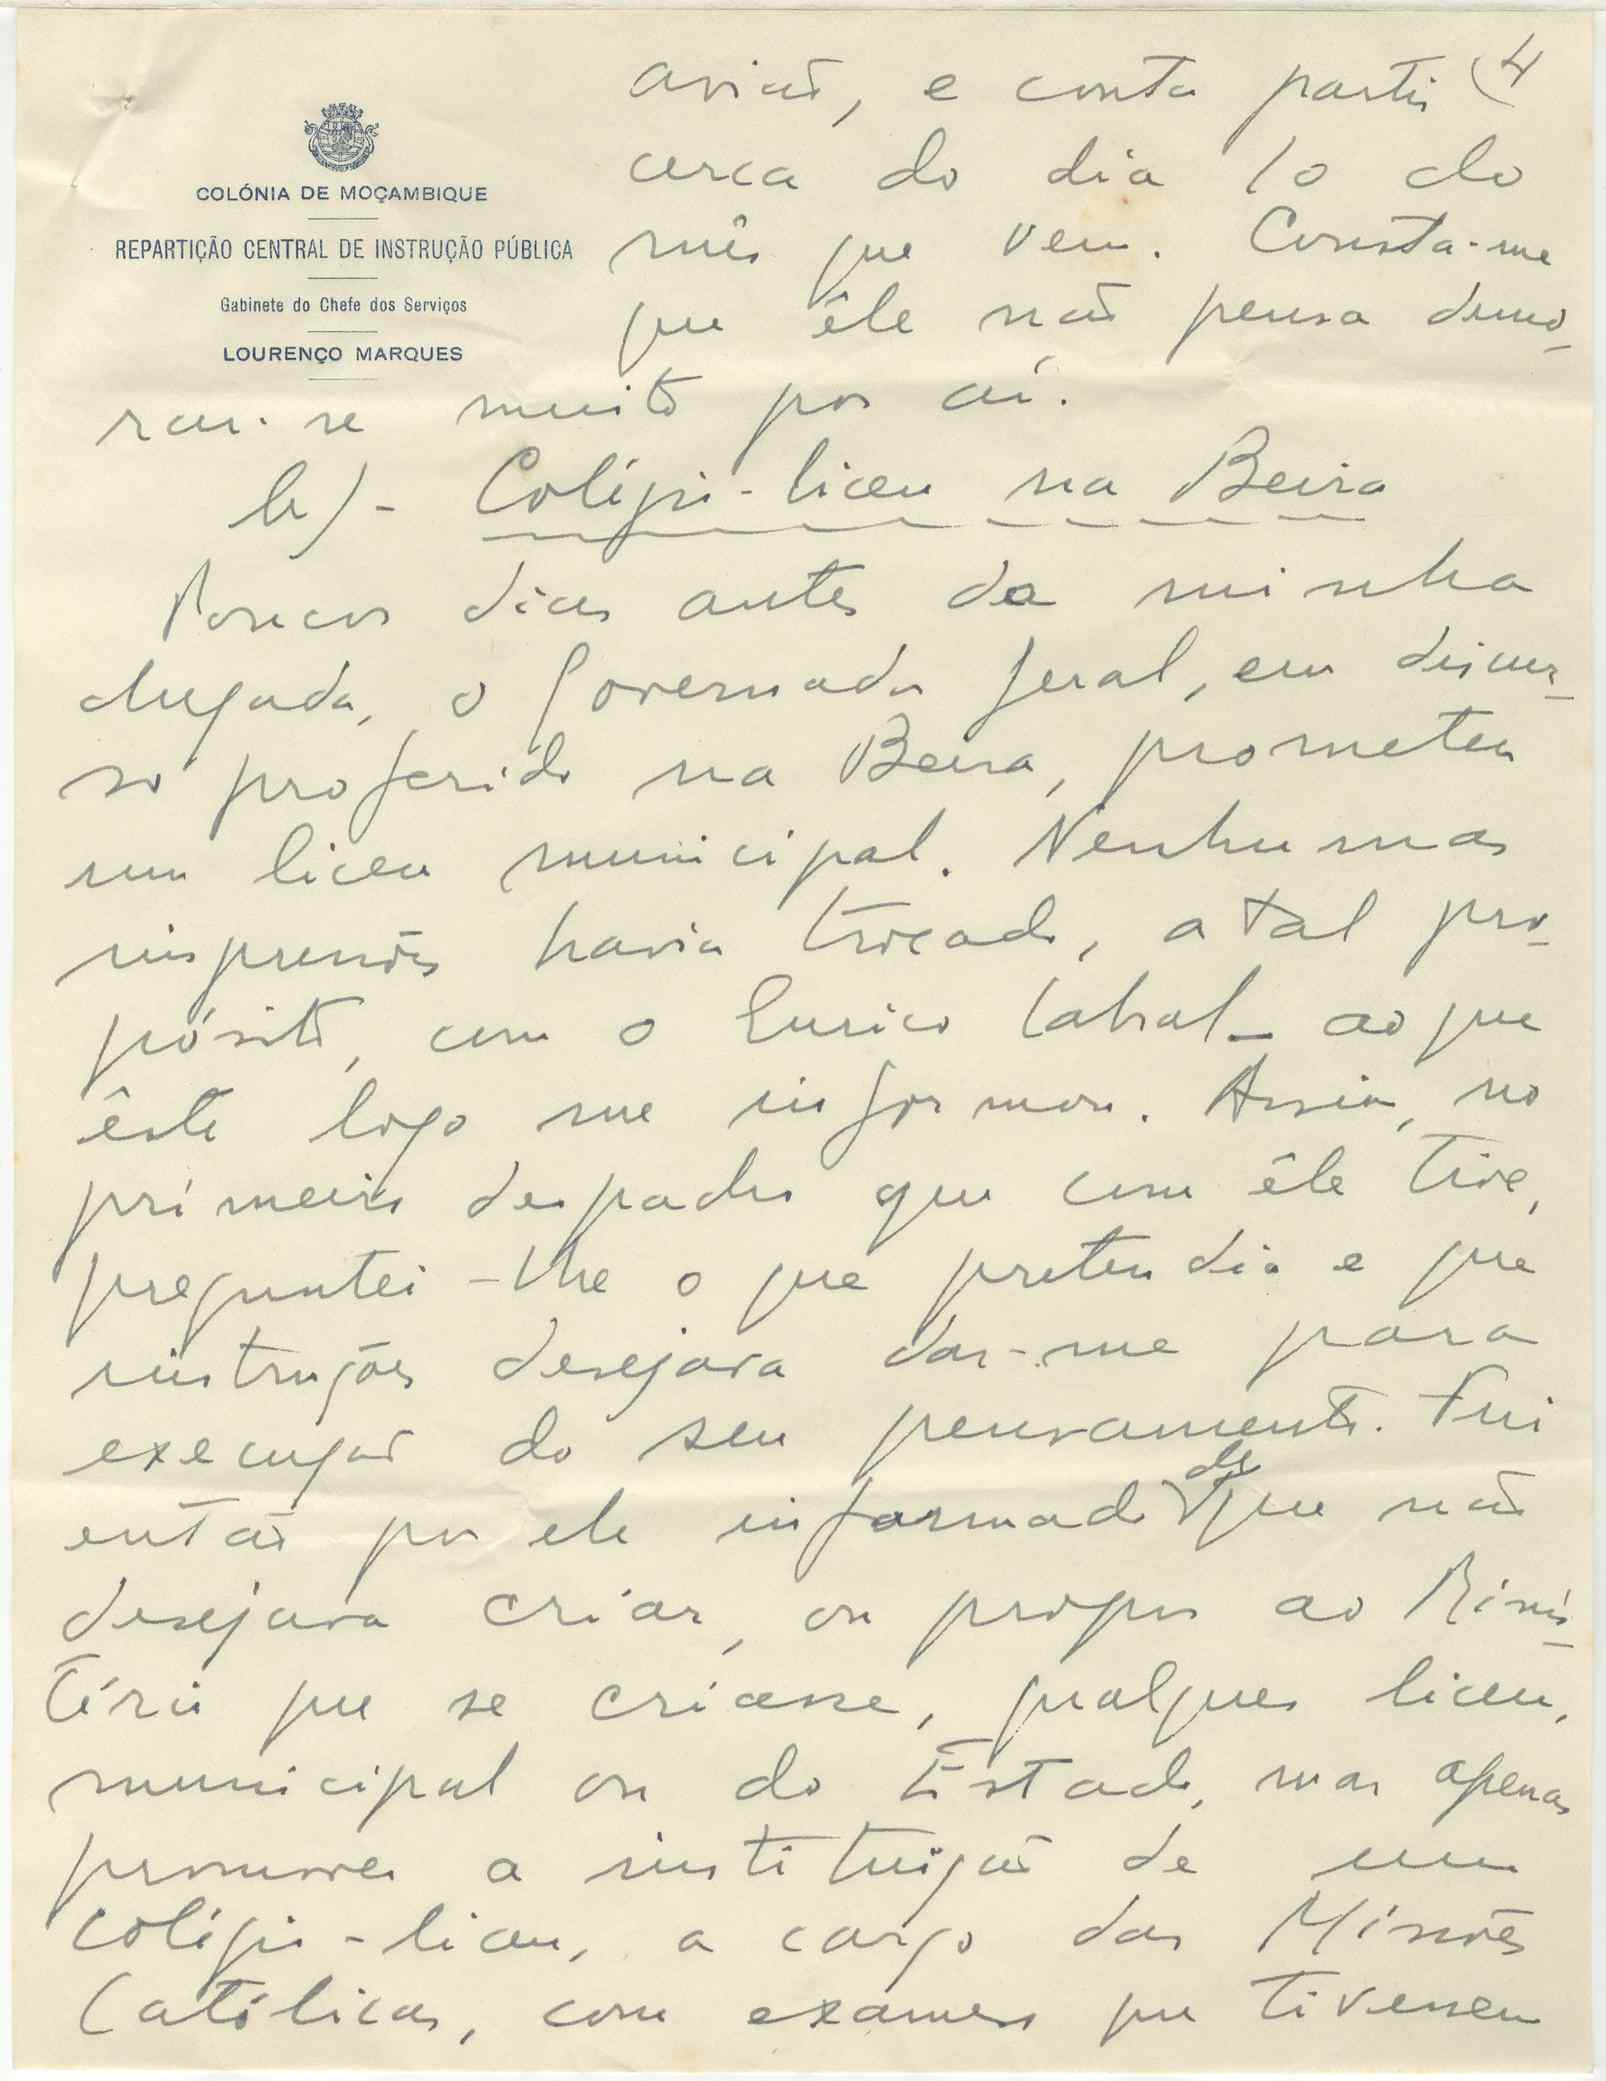 COLÓNIA DE MOÇAMBIQUE
REPARTIÇÃO CENTRAL DE INSTRUÇÃO PÚBLICA
Gabinete do Chefe dos Serviços
LOURENÇO MARQUES
(4
avião, e conta partir
cerca do dia 10 do
mês que vem. Consta-me
que êle não pensa demo-
rar-se muito por aí.
b)- Colégio-liceu na Beira
Poucos dias antes da minha
chegada, o Governador Geral, em discur-
so proferido na Beira, prometeu
um liceu municipal. Nenhumas
impressões havia trocado, a tal pro-
pósito, com o Eurico Cabral - ao que
êste logo me informou. Assim, no
primeiro despacho que com êle tive,
preguntei-lhe o que pretendia e que
instruções desejava dar-me para
execução do seu pensamento. Fui
então por ele informado de que não
desejava criar, ou propor ao Minis-
tério que se criasse, qualquer liceu,
municipal ou do Estado, mas apenas
promover a instituição de um
colégio-liceu, a cargo das Missões
Católicas, com exames que tivessem